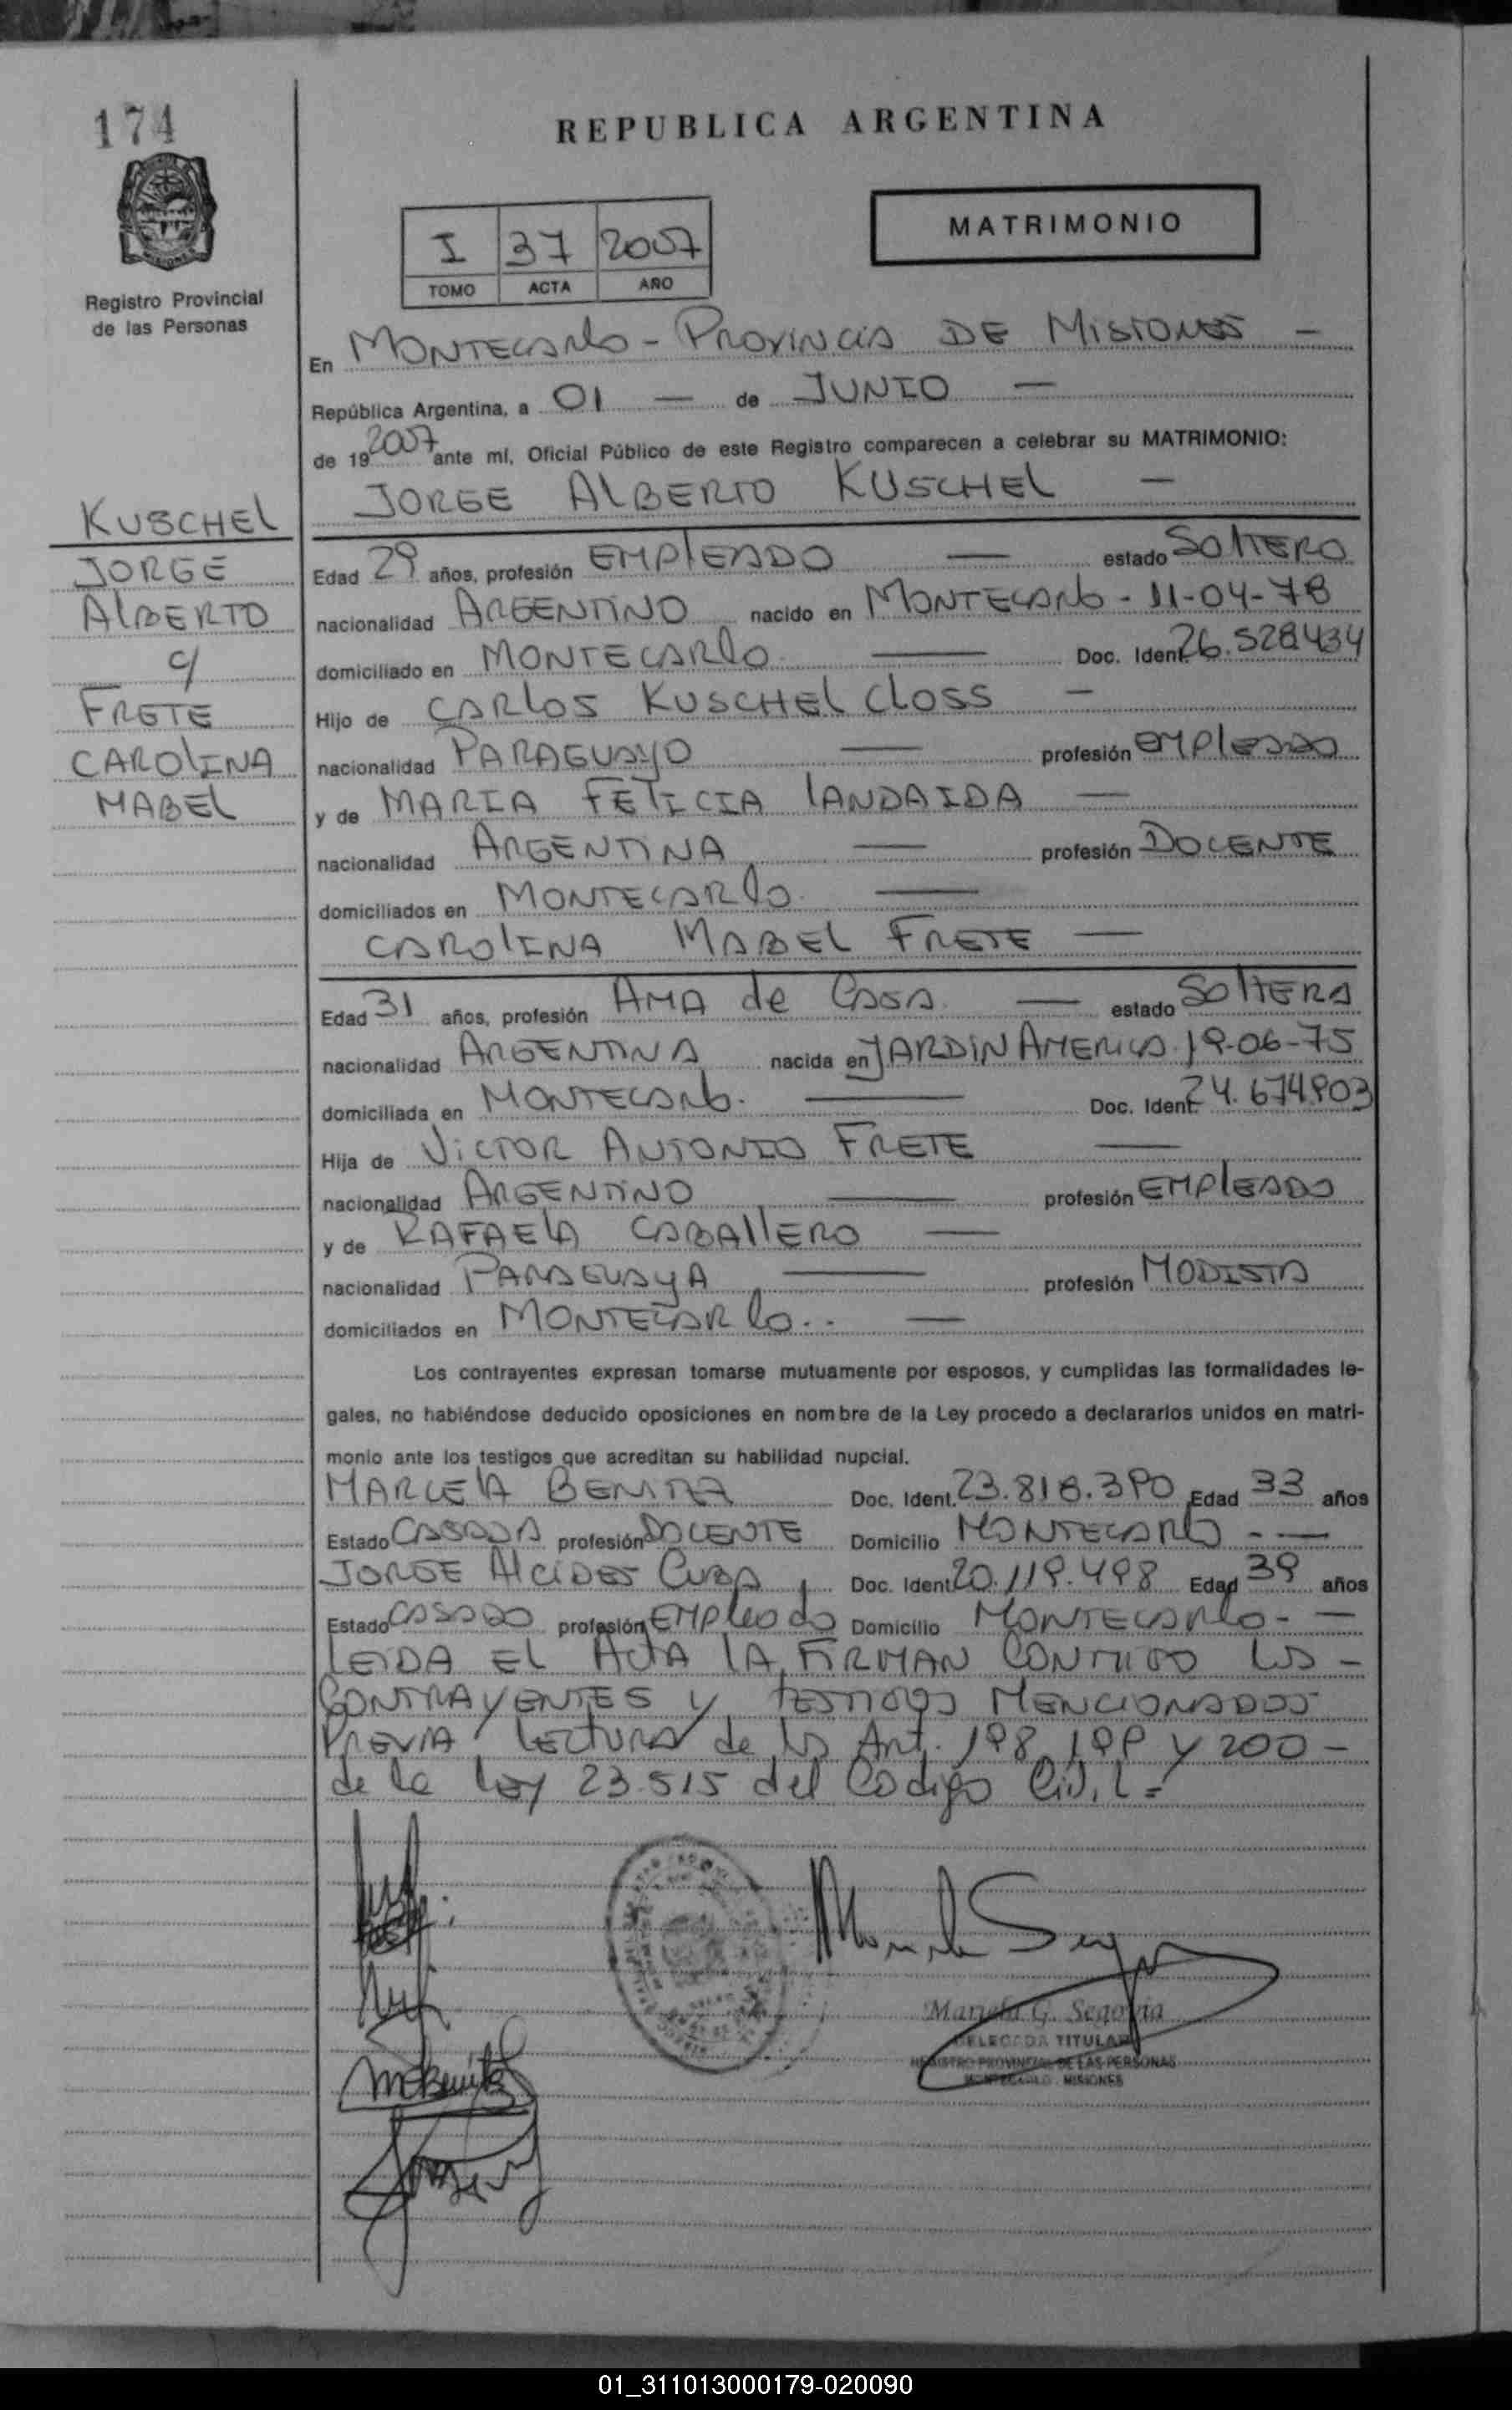 174
REPUBLICA ARGENTINA
MATRIMONIO
I 37 2007
TOMO ACTA AÑO
Registro Provincial
de las Personas
En MONTECARLO - PROVINCIA DE MISIONES -
República Argentina, a 01 — de JUNIO —
de 19 2007 ante mí, Oficial Público de este Registro comparecen a celebrar su MATRIMONIO:
JORGE ALBERTO KUSCHEL —
KUSCHEL
JORGE
ALBERTO
c/
FRETE
CAROLINA
MABEL
Edad 29 años, profesión EMPLEADO — estado SOLTERO
nacionalidad ARGENTINO nacido en MONTECARLO - 11-04-78
domiciliado en MONTECARLO — Doc. Ident. 26.528434
Hijo de CARLOS KUSCHEL CLOSS —
nacionalidad PARAGUAYO — profesión EMPLEADO
y de MARIA FELICIA LANDAIDA —
nacionalidad ARGENTINA — profesión DOCENTE
domiciliados en MONTECARLO. —
CAROLINA MABEL FRETE —
Edad 31 años, profesión AMA de CASA. — estado SOLTERA
nacionalidad ARGENTINA nacida en JARDIN AMERICA 19-06-75
domiciliada en MONTECARLO. — Doc. Ident. 24.674903
Hija de VICTOR ANTONIO FRETE —
nacionalidad ARGENTINO — profesión EMPLEADO
y de RAFAELA CABALLERO —
nacionalidad PARAGUAYA — profesión MODISTA
domiciliados en MONTECARLO.. —
Los contrayentes expresan tomarse mutuamente por esposos, y cumplidas las formalidades le-
gales, no habiéndose deducido oposiciones en nombre de la Ley procedo a declararlos unidos en matri-
monio ante los testigos que acreditan su habilidad nupcial.
MARCELA BENITEZ Doc. Ident. 23.818.390 Edad 33 años
Estado CASADA profesión DOCENTE Domicilio MONTECARLO - —
JORGE ALCIDES CUBA Doc. Ident. 20.119.498 Edad 39 años
Estado CASADO profesión EMPLEADO Domicilio MONTECARLO - —
LEIDA EL ACTA LA FIRMAN CONMIGO LOS -
CONTRAYENTES Y TESTIGOS MENCIONADOS
PREVIA LECTURA de los Art. 198, 199 Y 200 -
de la Ley 23.515 del Codigo Civil =
Mariela G. Segovia
DELEGADA TITULAR
REGISTRO PROVINCIAL DE LAS PERSONAS
MONTECARLO - MISIONES
01_311013000179-020090